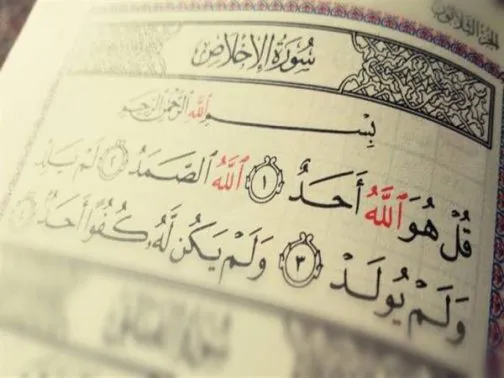 الجزء الثلاثون
سُورَةُ الإِخْلَاصِ
بِسْمِ ٱللَّهِ ٱلرَّحْمَٰنِ ٱلرَّحِيمِ
قُلْ هُوَ ٱللَّهُ أَحَدٌ ١ ٱللَّهُ ٱلصَّمَدُ ٢ لَمْ يَلِدْ
وَلَمْ يُولَدْ ٣ وَلَمْ يَكُن لَّهُۥ كُفُوًا أَحَدٌۢ ٤
سُورَةُ الفَلَقِ